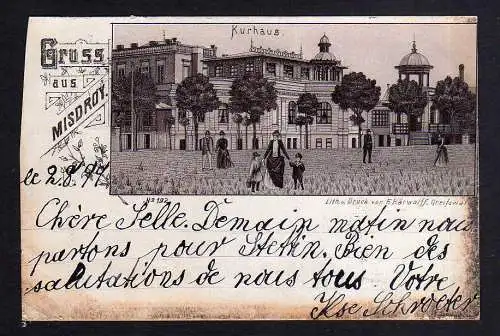 Kurhaus.
Gruss
aus
MISDROY.
le 2.8.97
No 192
Lith. u. Druck von F. Bärwolff, Greifswald
Chère Selle. Demain matin nous
partons pour Stettin. Bien des
salutations de nous tous Votre
Ilse Schroeter